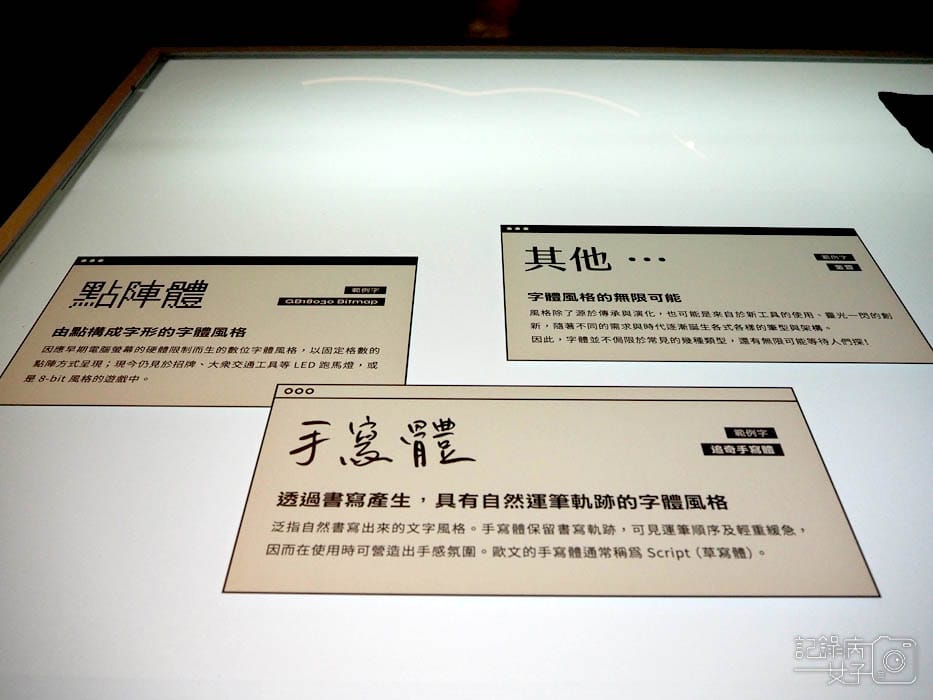 點陣體
範例字
GB18030 Bitmap
由點構成字形的字體風格
因應早期電腦螢幕的硬體限制而生的數位字體風格，以固定格數的
點陣方式呈現；現今仍見於招牌、大眾交通工具等 LED 跑馬燈，或
是 8-bit 風格的遊戲中。
其他 …
範例字
字體風格的無限可能
風格除了源於傳承與演化，也可能是來自於新工具的使用、靈光一閃的創
新，隨著不同的需求與時代逐漸誕生各式各樣的筆型與架構。
因此，字體並不侷限於常見的幾種類型，還有無限可能等待人們探！
手寫體
範例字
追奇手寫體
透過書寫產生，具有自然運筆軌跡的字體風格
泛指自然書寫出來的文字風格。手寫體保留書寫軌跡，可見運筆順序及輕重緩急，
因而在使用時可營造出手感氛圍。歐文的手寫體通常稱爲 Script（草寫體）。
記錄內
女子